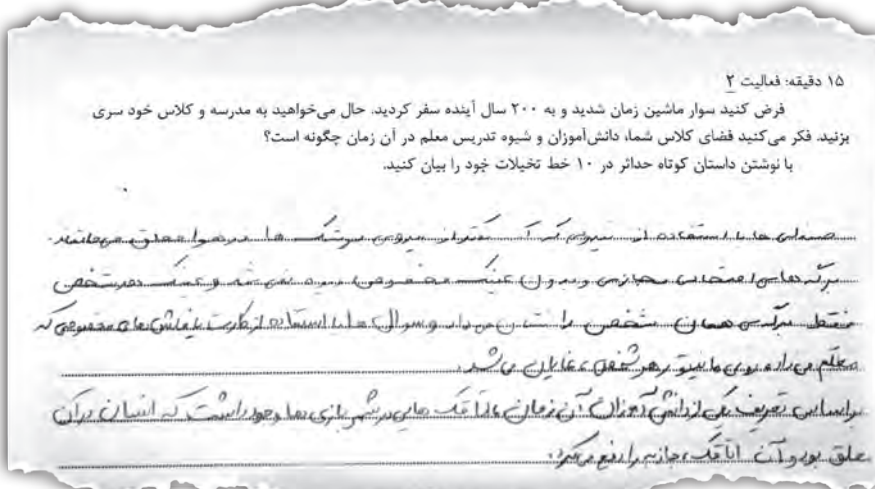 ۱۵ دقیقه: فعالیت ۲
فرض کنید سوار ماشین زمان شدید و به ۲۰۰ سال آینده سفر کردید. حال می‌خواهید به مدرسه و کلاس خود سری
بزنید. فکر می‌کنید فضای کلاس شما، دانش‌آموزان و شیوه تدریس معلم در آن زمان چگونه است؟
با نوشتن داستان کوتاه حداکثر در ۱۰ خط تخیلات خود را بیان کنید.
صندلی ها با استفاده از نیروی کم تر از نیروی موشک ها در هوا معلق می‌مانند.
برگه های امتحانی مجازی و بدون عینک مخصوص دیده نمی شد و عینک هر شخص
فقط برگه ی همان شخص را نشان می داد و سوال ها با استفاده از کارت یا فلش های مخصوصی که
معلم می داد روی مانیتور هر شخص، نمایان می شد.
براساس تعریف یکی از دانش آموزان آن زمان اتاقک هایی در شهر بازی ها وجود داشت که انسان در آن
معلق بود و آن اتاقک، جاذبه را دفع می کرد.